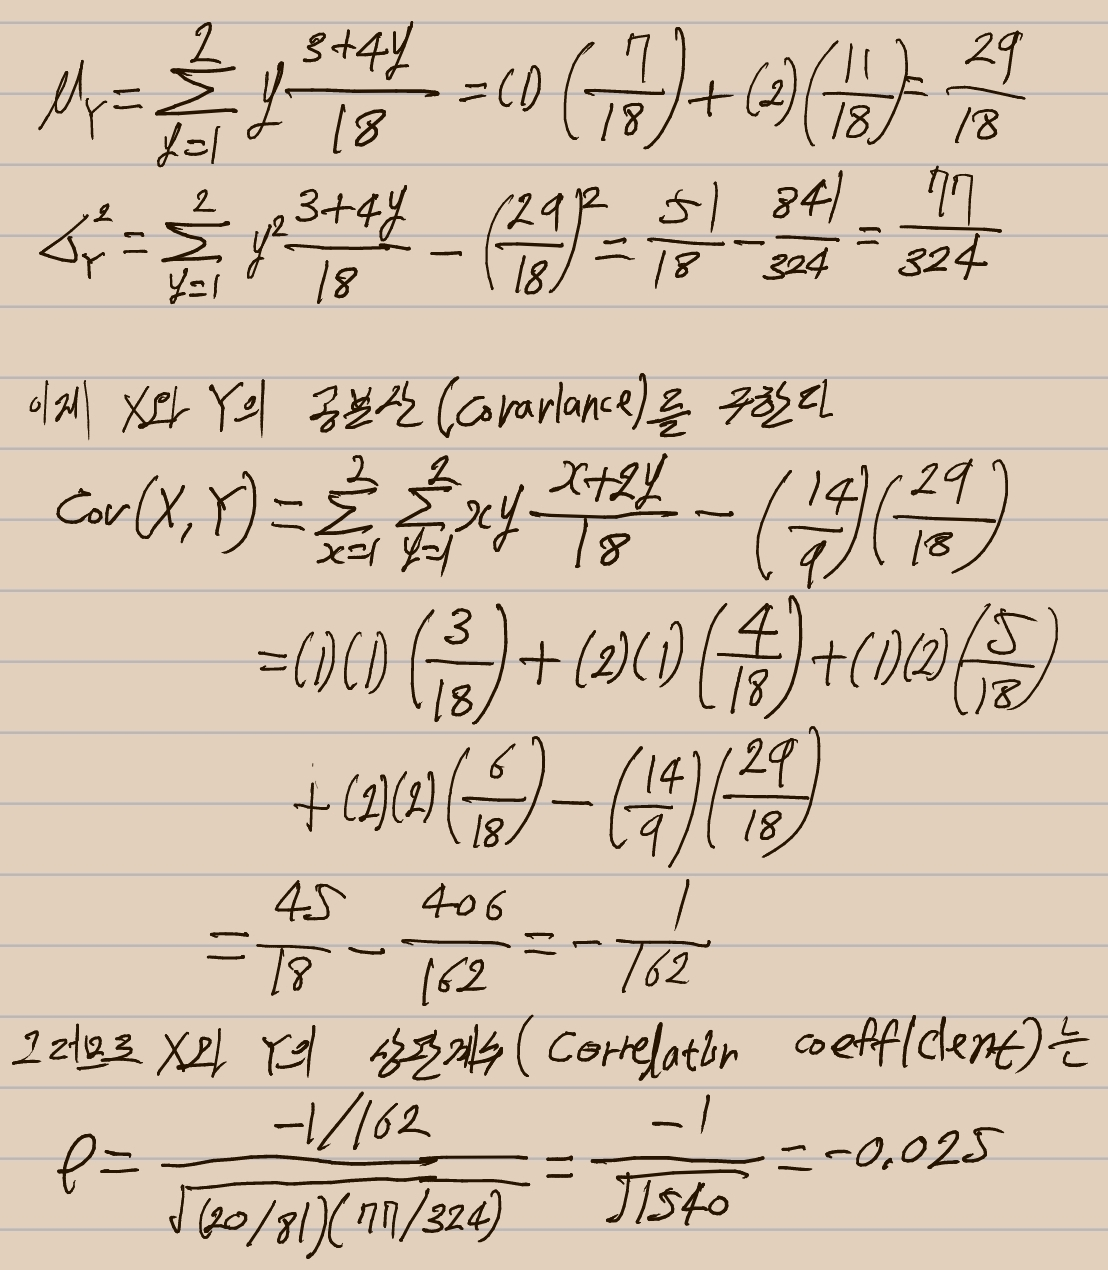 μ_Y = Σ_{y=1}^{2} y (3+4y)/18 = (1)(7/18) + (2)(11/18) = 29/18
σ_Y^2 = Σ_{y=1}^{2} y^2 (3+4y)/18 - (29/18)^2 = 51/18 - 841/324 = 77/324
이제 X와 Y의 공분산(Covariance)를 구한다
Cov(X, Y) = Σ_{x=1}^{2} Σ_{y=1}^{2} xy (x+2y)/18 - (14/9)(29/18)
= (1)(1)(3/18) + (2)(1)(4/18) + (1)(2)(5/18)
+ (2)(2)(6/18) - (14/9)(29/18)
= 45/18 - 406/162 = - 1/162
그러므로 X와 Y의 상관계수(Correlation coefficient)는
ρ = (-1/162)/√((20/81)(77/324)) = -1/√1540 = -0.025